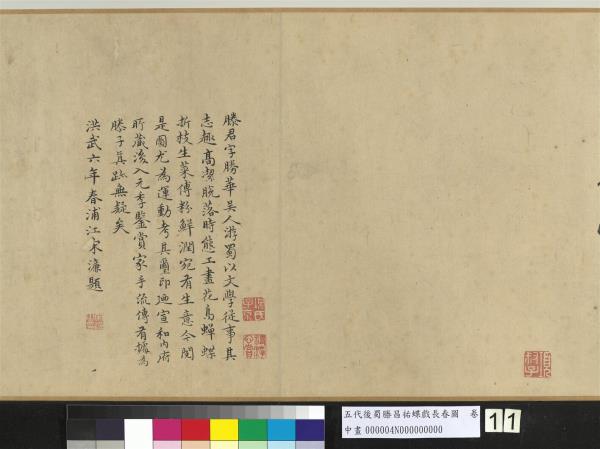 滕君字勝華吳人游蜀以文學從事其
志趣高潔脫落時態工畫花鳥蟬蝶
折枝生菜傅粉鮮潤宛有生意今閱
是圖尤為運動考其璽印迺宣和內府
所藏後入元季鑒賞家手流傳有據為
滕子真跡無疑矣
洪武六年春浦江宋濂題
五代後蜀滕昌祐蝶戲長春圖 卷
中畫000004N000000000
11